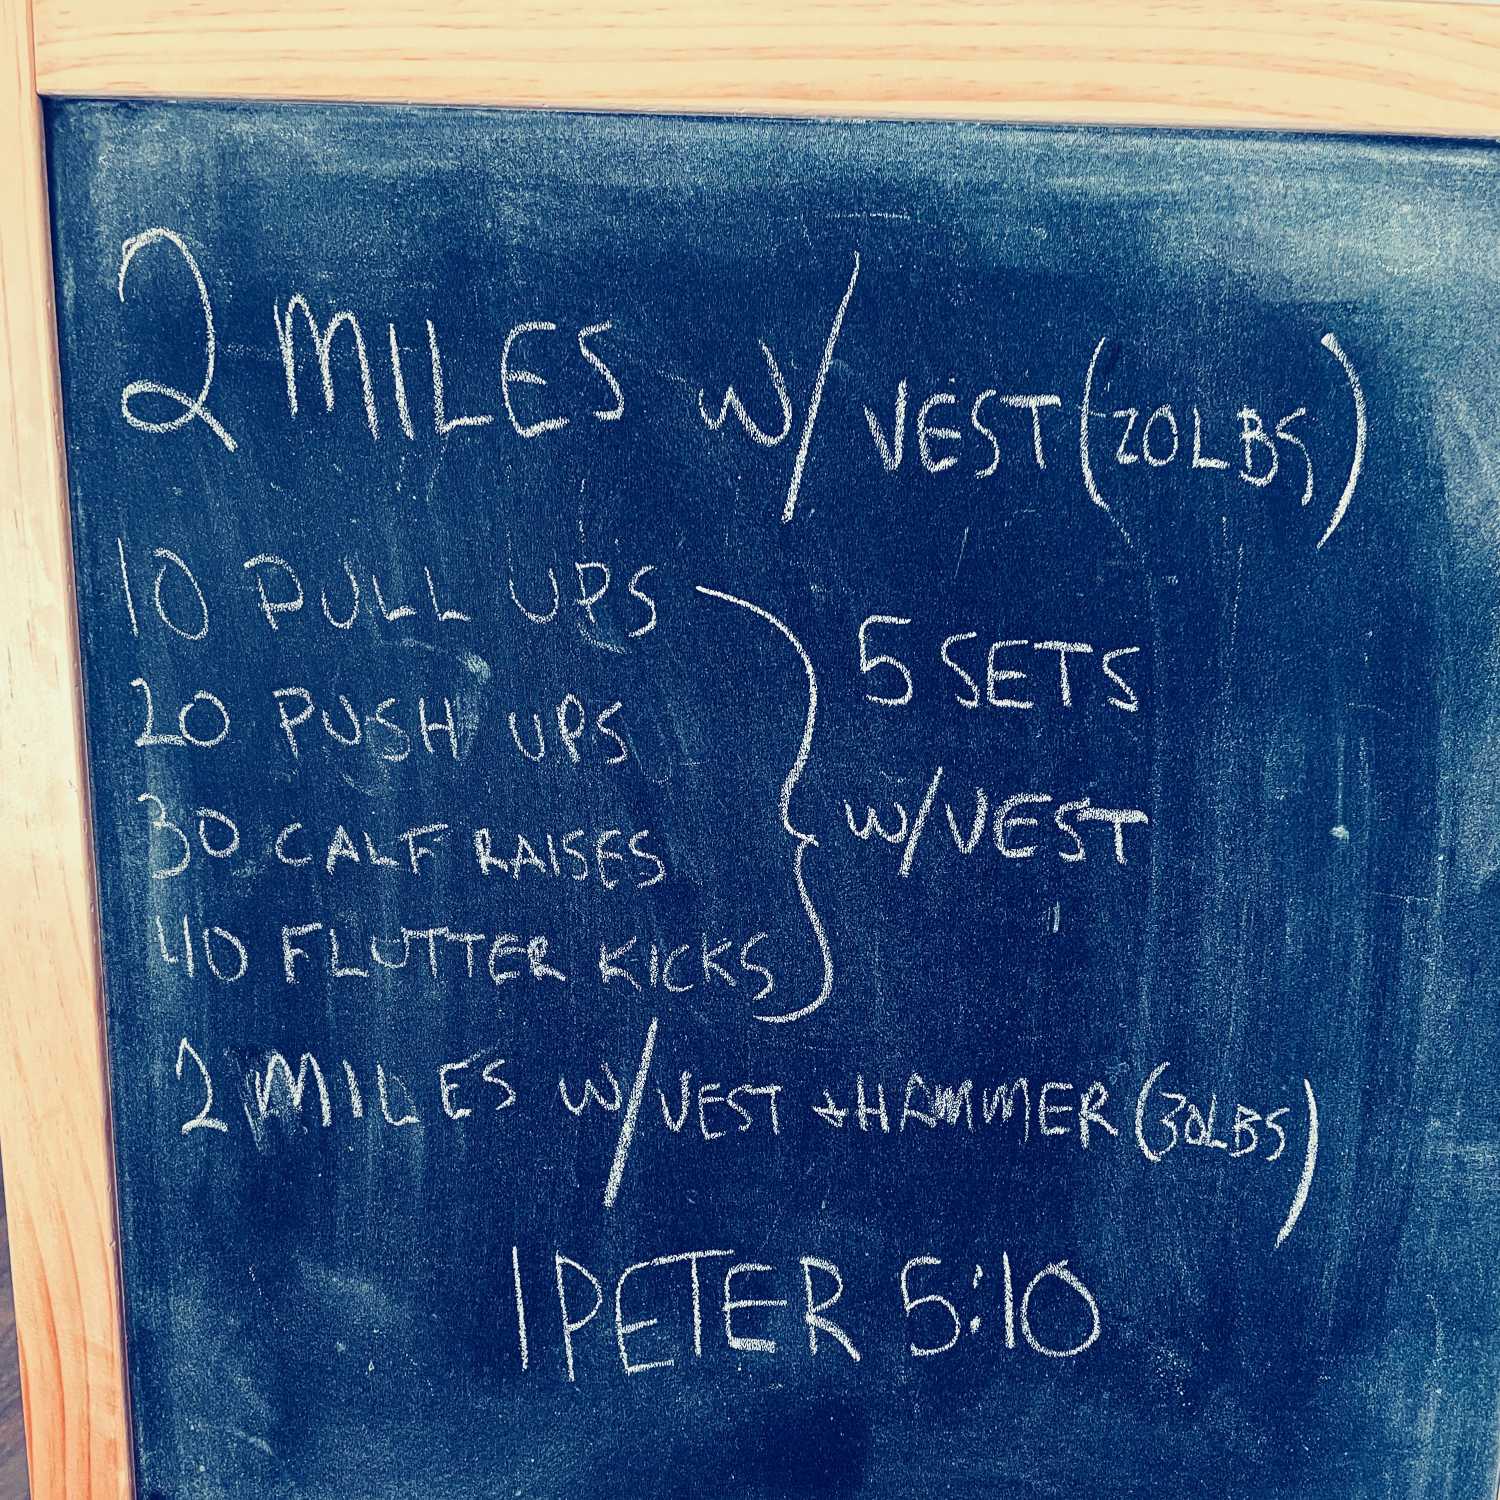 2 MILES W/ VEST (20LBS)
10 PULL UPS
20 PUSH UPS
30 CALF RAISES
40 FLUTTER KICKS
5 SETS
W/VEST
2 MILES W/VEST + HAMMER (30LBS)
1 PETER 5:10